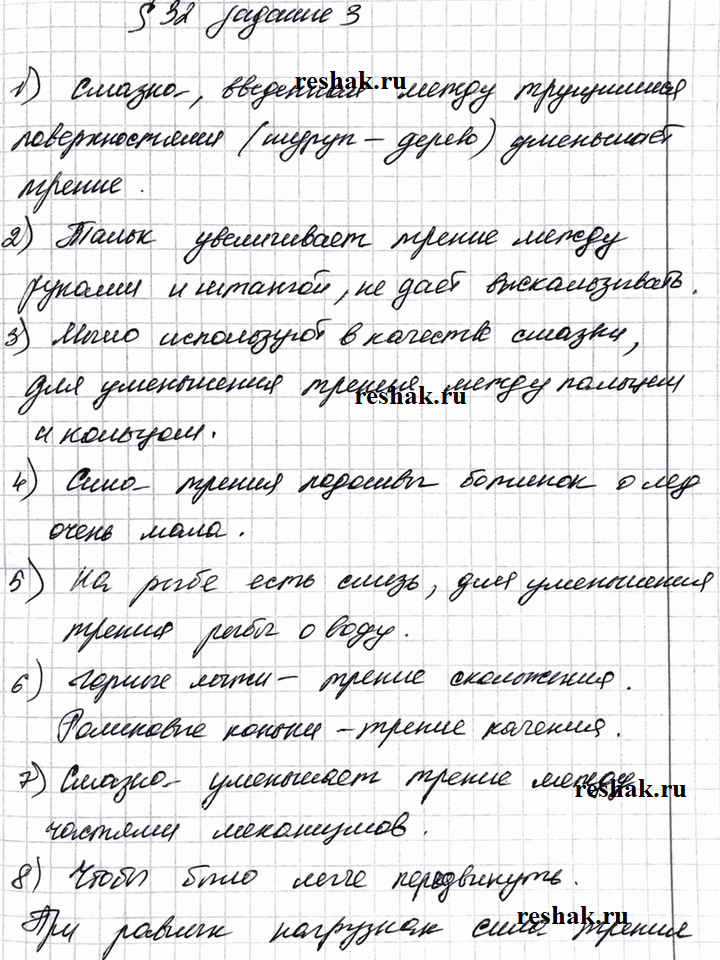 § 32 задание 3
1) Смазка, введенная между трущимися
поверхностями (шуруп – дерево) уменьшает
трение.
2) Тальк увеличивает трение между
руками и штангой, не дает выскальзывать.
3) Мыло используют в качестве смазки,
для уменьшения трения между пальцем
и кольцом.
4) Сила трения подошвы ботинок о лед
очень мала.
5) На рыбе есть слизь, для уменьшения
трения рыбы о воду.
6) Горные лыжи – трение скольжения.
Роликовые коньки – трение качения.
7) Смазка уменьшает трение между
частями механизмов.
8) Чтобы было легче передвинуть.
При равных нагрузках сила трения
reshak.ru
reshak.ru
reshak.ru
reshak.ru